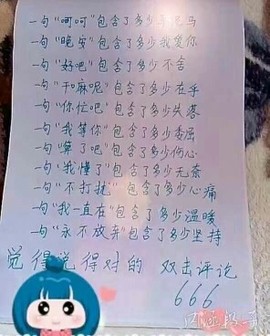 一句"呵呵"包含了多少草泥马
一句"晚安"包含了多少我爱你
一句"好吧"包含了多少不舍
一句"干麻呢"包含了多少在乎
一句"你忙吧"包含了多少失落
一句"我等你"包含了多少委屈
一句"算了吧"包含了多少伤心
一句"我懂了"包含了多少无奈
一句"不打扰"包含了多少心痛
一句"我一直在"包含了多少温暖
一句"永不放弃"包含了多少坚持
觉得说得对的 双击评论
666